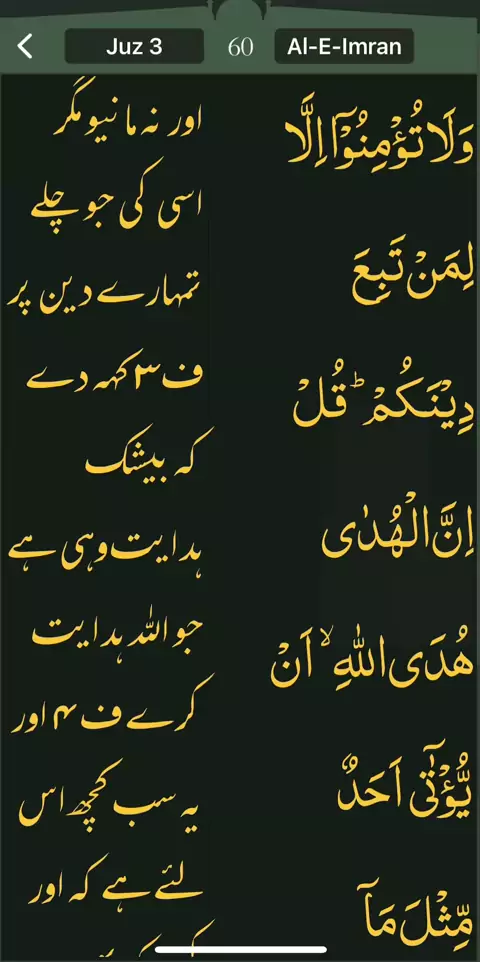 Juz 3
60
Al-E-Imran
وَلَا تُؤْمِنُوْۤا اِلَّا
لِمَنْ تَبِعَ
دِيْنَكُمْ ؕ قُلْ
اِنَّ الْهُدٰى
هُدَى اللّٰهِ ۙ اَنْ
يُّؤْتٰۤى اَحَدٌ
مِّثْلَ مَاۤ
اور نہ مانیو مگر
اسی کی جو چلے
تمہارے دین پر
ف۳ کہہ دے
کہ بیشک
ہدایت وہی ہے
جو اللہ ہدایت
کرے ف۴ اور
یہ سب کچھ اس
لئے ہے کہ اور